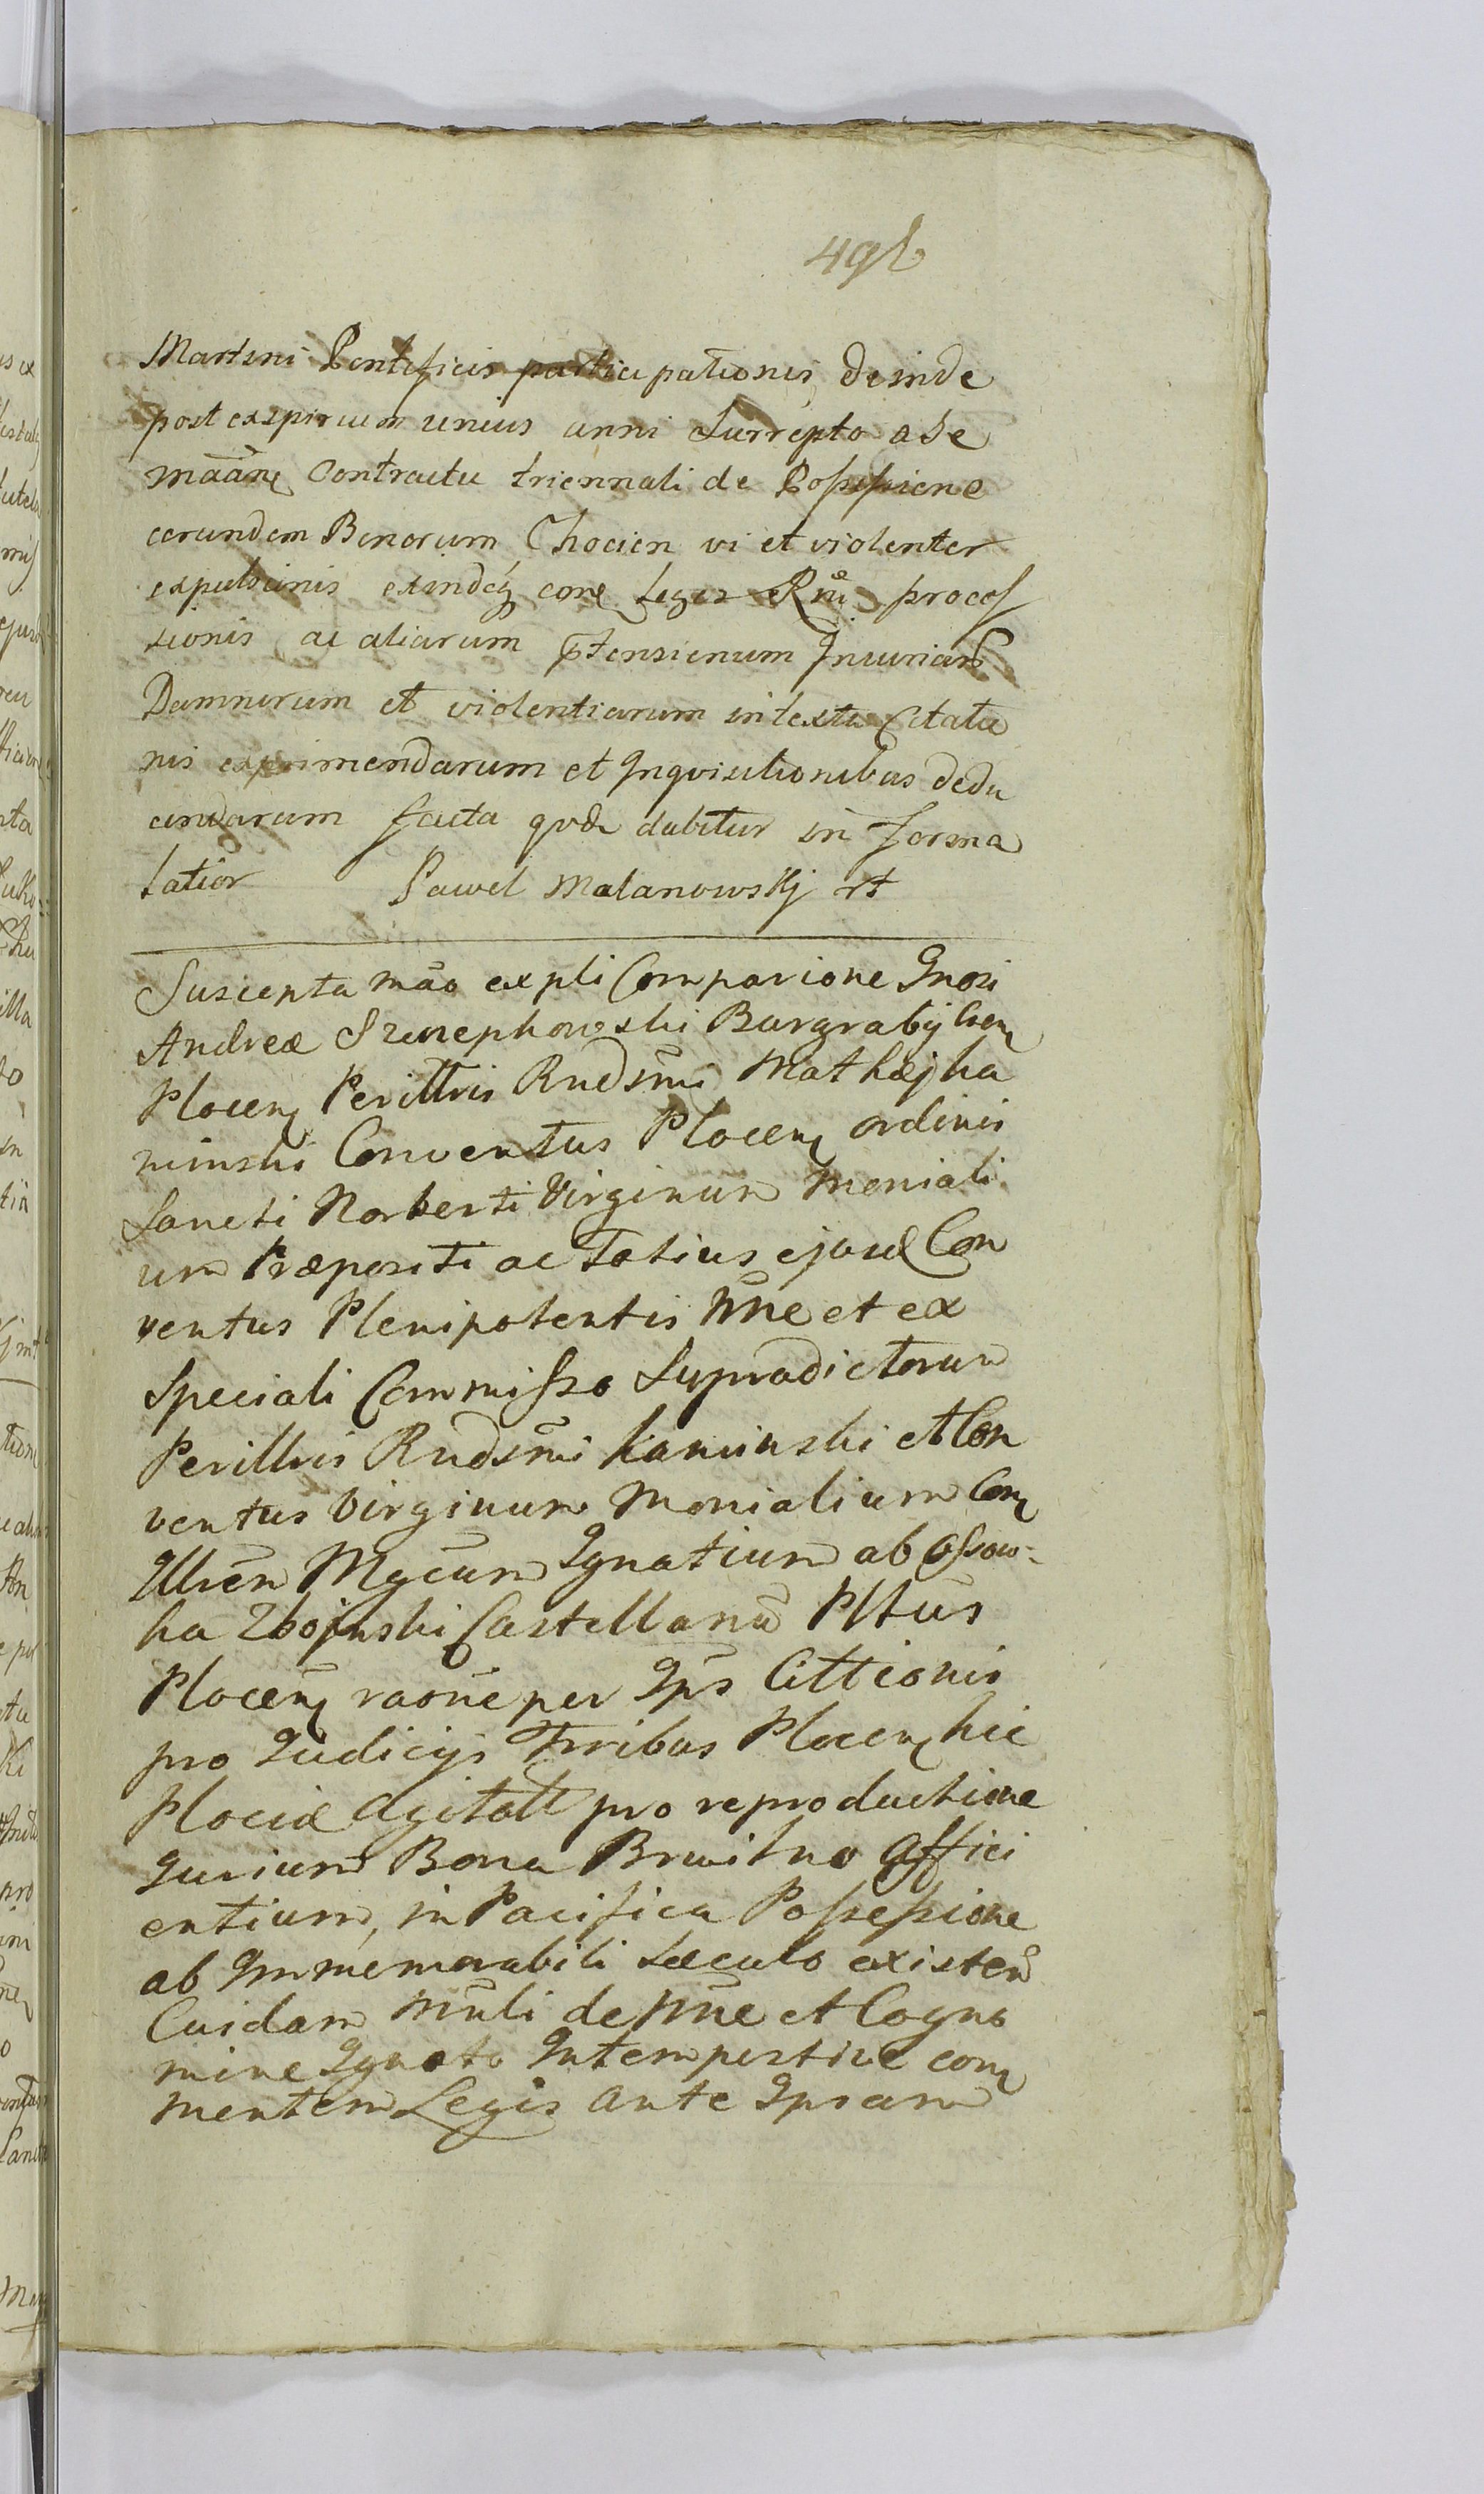 491
Martini Pontificis participationis deinde
post expirium unius anni Surrepto a se
māāne Contractu triennali de Possessione
eorundem Bonorum Chocien vi et violenter
expulsionis exindeq cone Leges Rni proces
sionis ac aliarum ptensionum Injuriarū
Damnorum et violentiarum in textu Citatio
nis exprimendarum et Inquisitionibus dedu
cendarum facta qvae dabitur in forma
latior Paweł Malanowskj rt
Suscepta māo expli Comparione Gnosi
Andreæ Burgrabij Csen
Plocen Perillris Rndsmi Mathæj ka
minski Conventus Plocen ordinis
Sancti Norberti Virginum Moniali
um Præpositi ac Totius ejusd Con
ventus Plenipotentis nne et ex
Speciali Commisso Supradictorum
Perillris Rndsmi kaminski et Con
ventus Virginum Monialium Con
Illren Mgcum Ignatium ab Ossow-
ka Zbojnski Castellanū Pltus
Plocen raone per Ips Cittionis
pro Judicijs Trribus Plocen hic
Plociæ Agitatt pro reproductione
Jurium Bona Brwilno Affici
entium, in Pacifica Possessione
ab Immemorabili Sæculo existen
Cuidam de nne et Cogno
mine Ignoto Intempestive con
mentem Legis ante Ipsam